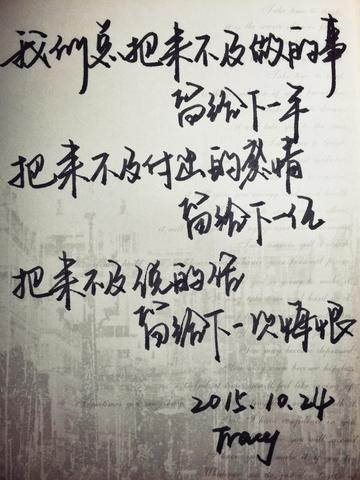 我们总把来不及做的事
留给下一年
把来不及付出的感情
留给下一任
把来不及说的话
留给下一次悔恨
2015.10.24
Tracy